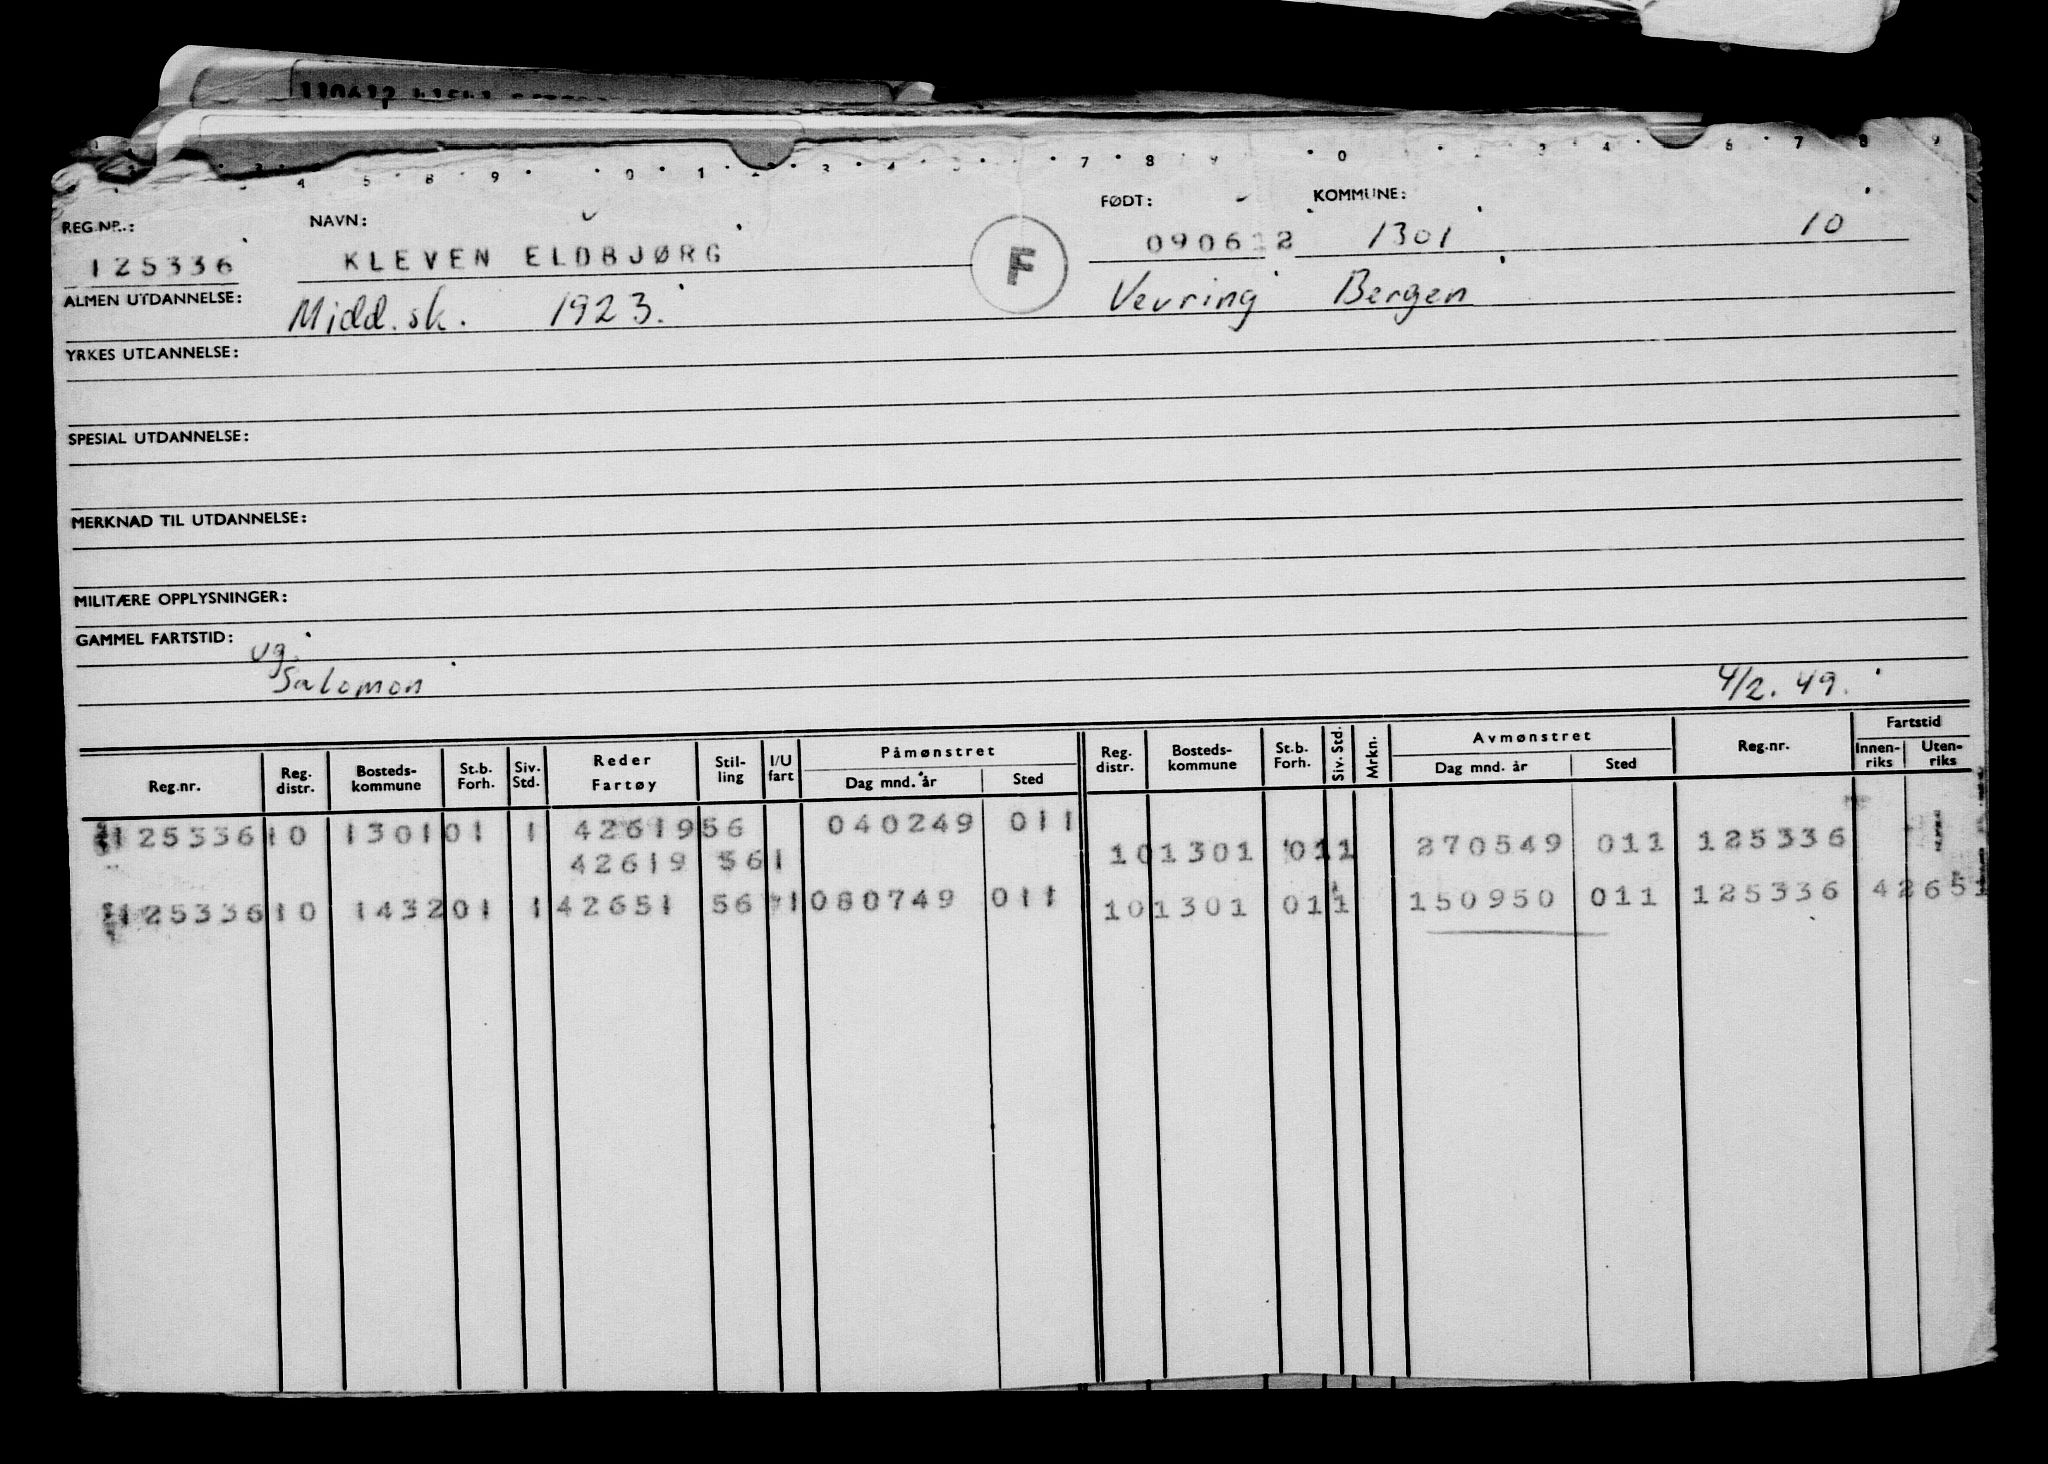 REG.NR.: NAVN: FØDT: KOMMUNE:
125336 KLEVEN ELDBJØRG F 090612 1301 10
ALMEN UTDANNELSE: Midd.sk. 1923. Vevring Bergen
YRKES UTDANNELSE:
SPESIAL UTDANNELSE:
MERKNAD TIL UTDANNELSE:
MILITÆRE OPPLYSNINGER:
GAMMEL FARTSTID: ug.
Salomon 4/2. 49.
Reg.nr. Reg. distr. Bosteds-kommune St.b. Forh. Siv. Std. Reder Fartøy Stil-ling I/U fart Påmønstret Dag mnd. år Sted Reg. distr. Bosteds-kommune St.b. Forh. Siv. Std. Mrkn. Avmønstret Dag mnd. år Sted Reg.nr. Fartstid Innen-riks Uten-riks
125336 10 1301 01 1 42619 56 040249 011
42619 56 1 10 1301 01 1 270549 011 125336
125336 10 1432 01 1 42651 56 1 080749 011 10 1301 01 1 150950 011 125336 42651